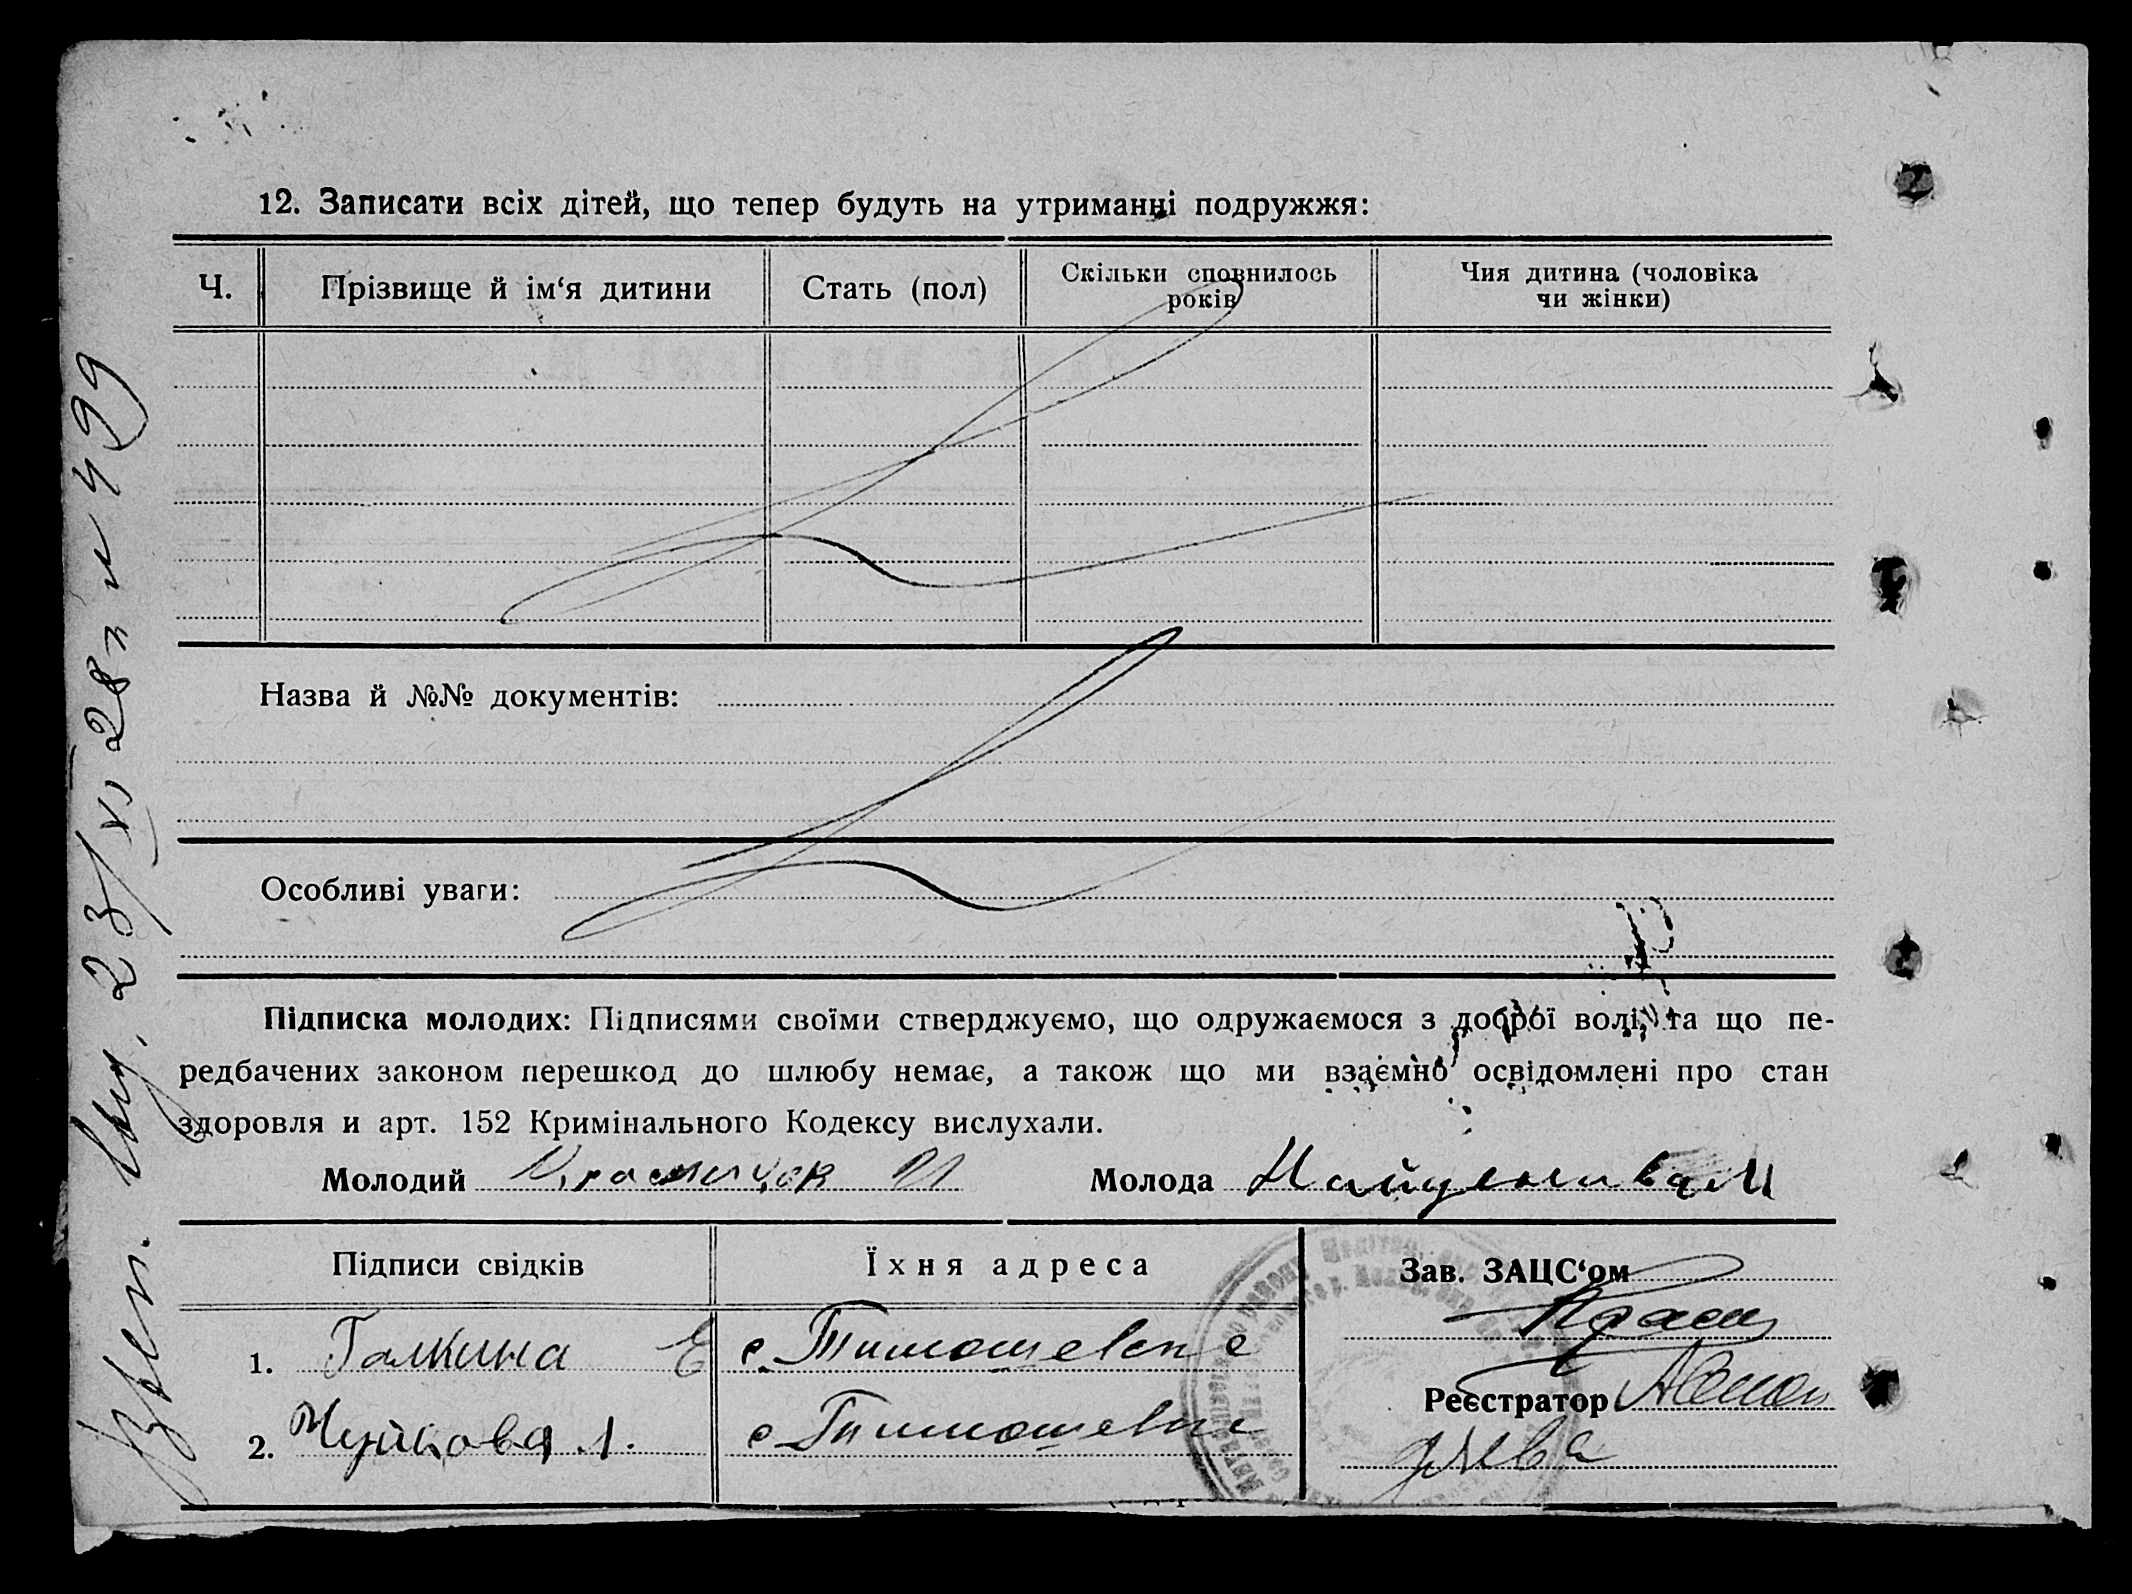 12. Записати всіх дітей, що тепер будуть на утриманні подружжя:
Ч.
Прізвище й ім‘я дитини
Стать (пол)
Скільки сповнилось
років
Чия дитина (чоловіка
чи жінки)
Назва й №№ документів:
Особливі уваги:
Підписка молодих: Підписями своїми стверджуємо, що одружаємося з доброї волі, та що пе-
редбачених законом перешкод до шлюбу немає, а також що ми взаємно освідомлені про стан
здоровля и арт. 152 Кримінального Кодексу вислухали.
Молодий
Молода
Підписи свідків
Їхня адреса
Зав. ЗАЦС‘ом
1. Галкина Е
с. Тимошевка
Реєстратор
2. Чуйкова
с Тимошевка
23/VI 28